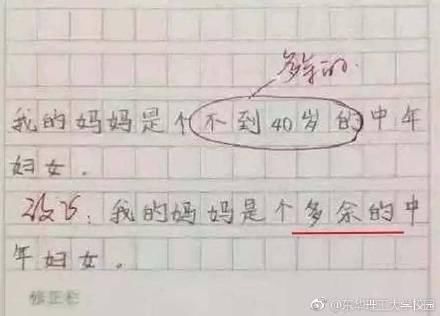 多余的
我的妈妈是个不到40岁的中年
妇女.
改正:我的妈妈是个多余的中
年妇女.
修正栏
@东华理工大学校园